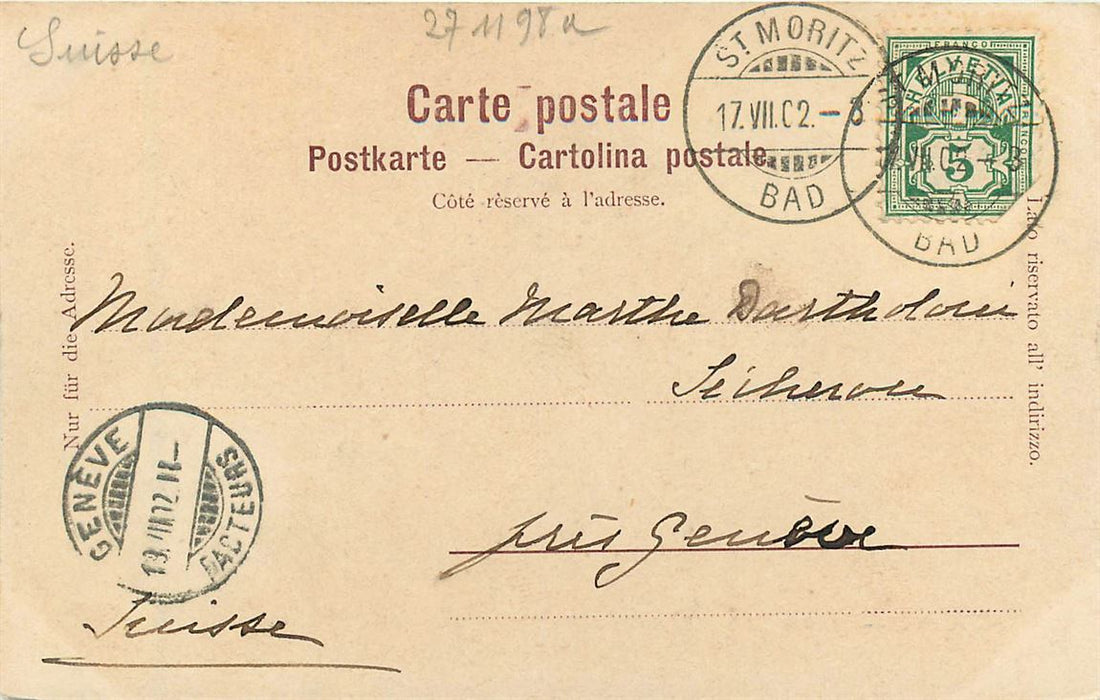 Suisse
27 11 98 a
Carte postale
Postkarte — Cartolina postale.
Côté rèservé à l'adresse.
ST MORITZ
17.VII.02.-3
BAD
DEFRANCO
HELVETIA
FRANCO
5
BAD
Nur für die Adresse.
Lato riservato all' indirizzo.
Mademoiselle Marthe Bartholoni
Sécheron
près Genève
Suisse
GENÈVE
19.VII.02.II-
FACTEURS